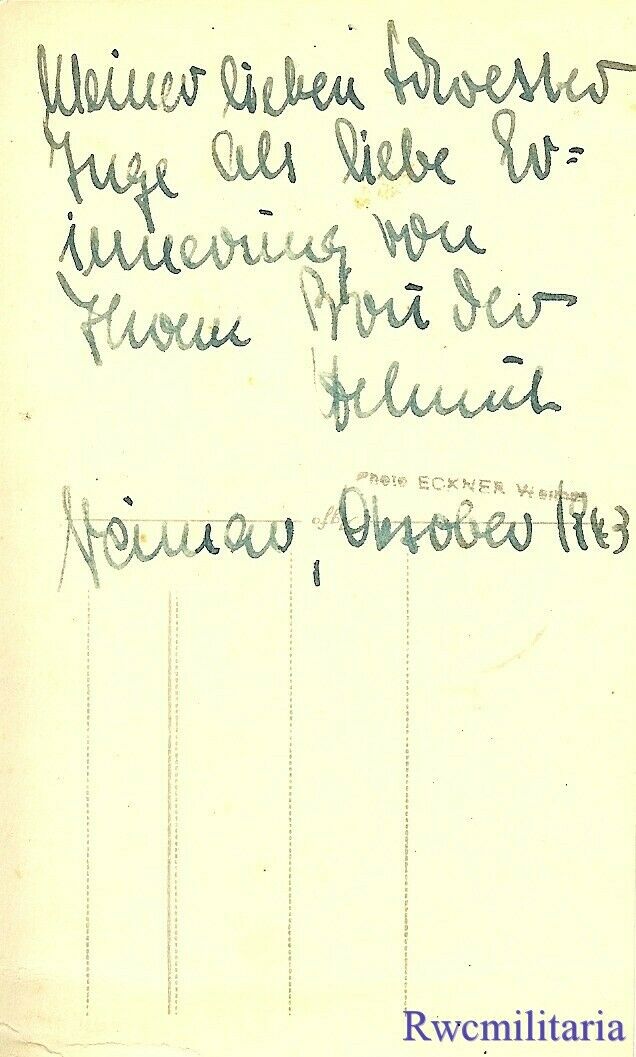 Meiner lieben Schwester
Inge als liebe Er=
innerung von
Ihrem Bruder
Helmut
Photo ECKNER Weimar
Weimar, Oktober 1943
Rwcmilitaria